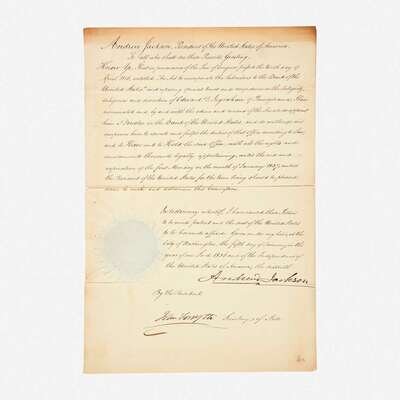 Andrew Jackson, President of the United States of America,
To all who shall see these Presents, Greeting:
Know Ye, That in pursuance of the Law of Congress passed the tenth day of
April 1816, entitled "An Act to incorporate the Subscribers to the Bank of the
United States" and reposing special trust and confidence in the Integrity,
diligence and discretion of Edward D. Ingraham of Pennsylvania, I have
nominated and by and with the advice and consent of the Senate do appoint
him a Director in the Bank of the United States, and do authorize and
empower him to execute and fulfil the duties of that Office according to Law;
and to Have and to Hold the said Office, with all the rights and
emoluments thereunto legally appertaining, until the end and
expiration of the first Monday in the month of January 1837, unless
the President of the United States for the time being should be pleased
sooner to revoke and determine this Commission.
In testimony whereof, I have caused these Letters
to be made patent and the seal of the United States
to be hereunto affixed. Given under my hand, at the
City of Washington, the fifth day of January in the
year of our Lord 1836 and of the Independence of
the United States of America, the sixtieth.
Andrew Jackson
By the President
John Forsyth Secretary of State